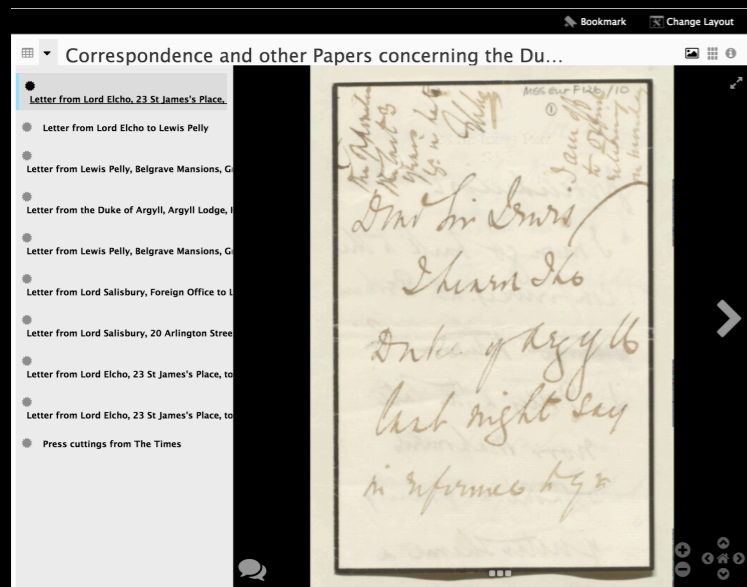 Bookmark
Change Layout
Correspondence and other Papers concerning the Du...
Letter from Lord Elcho, 23 St James's Place,
Letter from Lord Elcho to Lewis Pelly
Letter from Lewis Pelly, Belgrave Mansions, G
Letter from the Duke of Argyll, Argyll Lodge,
Letter from Lewis Pelly, Belgrave Mansions, G
Letter from Lord Salisbury, Foreign Office to L
Letter from Lord Salisbury, 20 Arlington Stree
Letter from Lord Elcho, 23 St James's Place, to
Letter from Lord Elcho, 23 St James's Place, to
Press cuttings from The Times
MSS Eur F126/10
1
I am off
to
on monday
Dear Sir Lewis
I heard the
Duke of Argyll
last night say
in reference to